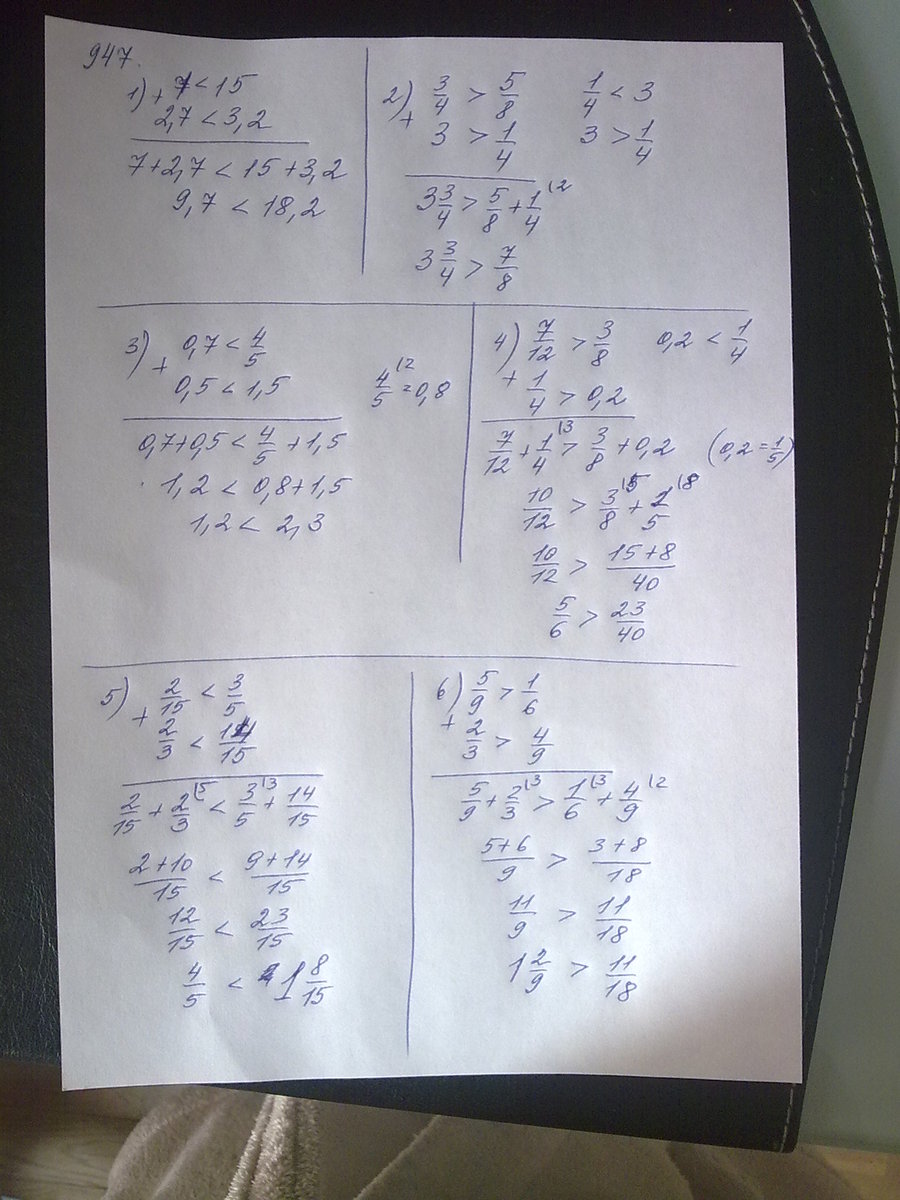 947.
1) + 7 < 15
2,7 < 3,2
7+2,7 < 15+3,2
9,7 < 18,2
2) + 3/4 > 5/8 1/4 < 3
3 > 1/4 3 > 1/4
3 3/4 > 5/8 + 1/4 \2
3 3/4 > 7/8
3) + 0,7 < 4/5
0,5 < 1,5 4/5 \2 = 0,8
0,7+0,5 < 4/5 + 1,5
1,2 < 0,8+1,5
1,2 < 2,3
4) + 7/12 > 3/8 0,2 < 1/4
1/4 > 0,2
7/12 + 1/4 \3 > 3/8 + 0,2 (0,2 = 1/5)
10/12 > 3/8 \5 + 1/5 \8
10/12 > 15+8/40
5/6 > 23/40
5) + 2/15 < 3/5
2/3 < 14/15
2/15 + 2/3 \5 < 3/5 \3 + 14/15
2+10/15 < 9+14/15
12/15 < 23/15
4/5 < 1 8/15
6) + 5/9 > 1/6
2/3 > 4/9
5/9 + 2/3 \3 > 1/6 \3 + 4/9 \2
5+6/9 > 3+8/18
11/9 > 11/18
1 2/9 > 11/18